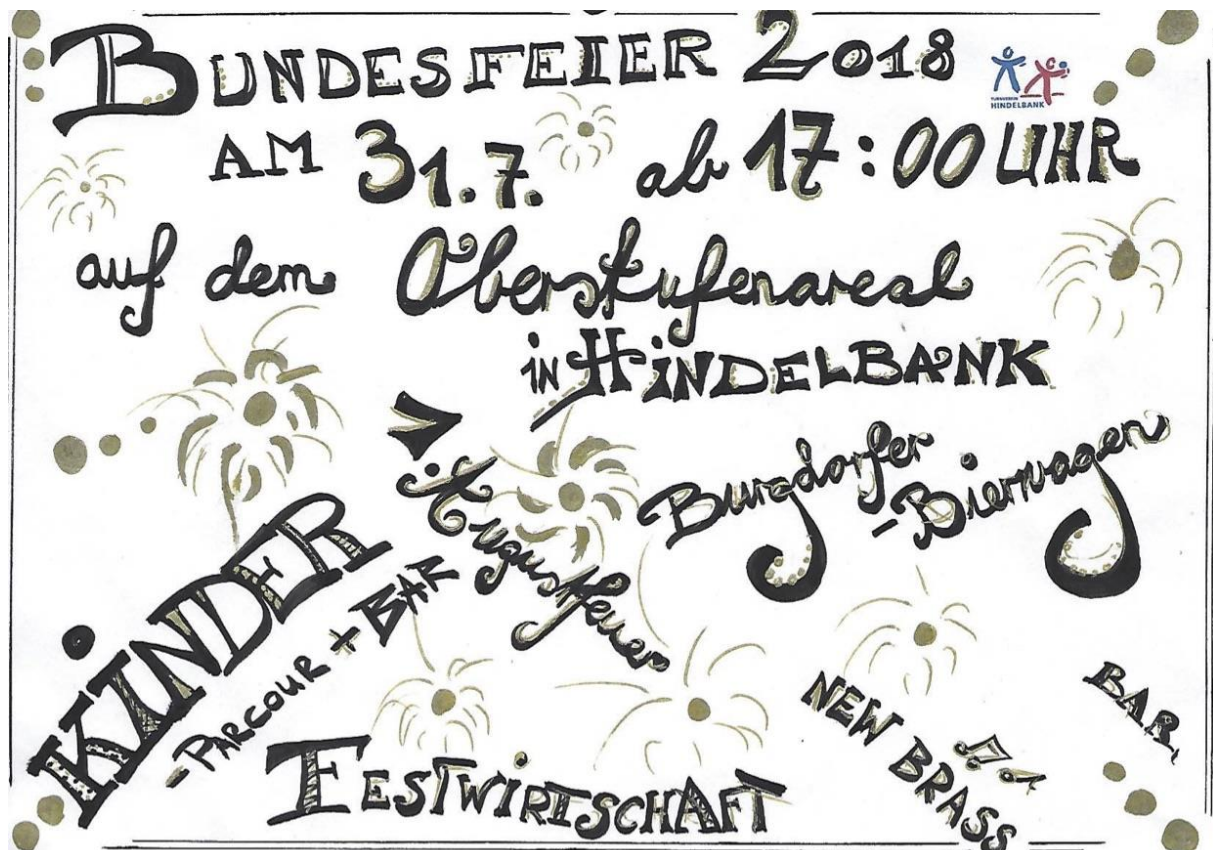 BUNDESFEIER 2018
TURNVEREIN
HINDELBANK
AM 31.7. ab 17:00 UHR
auf dem Oberstufenareal
in HiNDELBANK
1. Augustfeuer
Burgdorfer
-Bierwagen
KiNDER
-PARCOUR + BAR
FESTWiRTSCHAFT
NEW BRASS
BAR